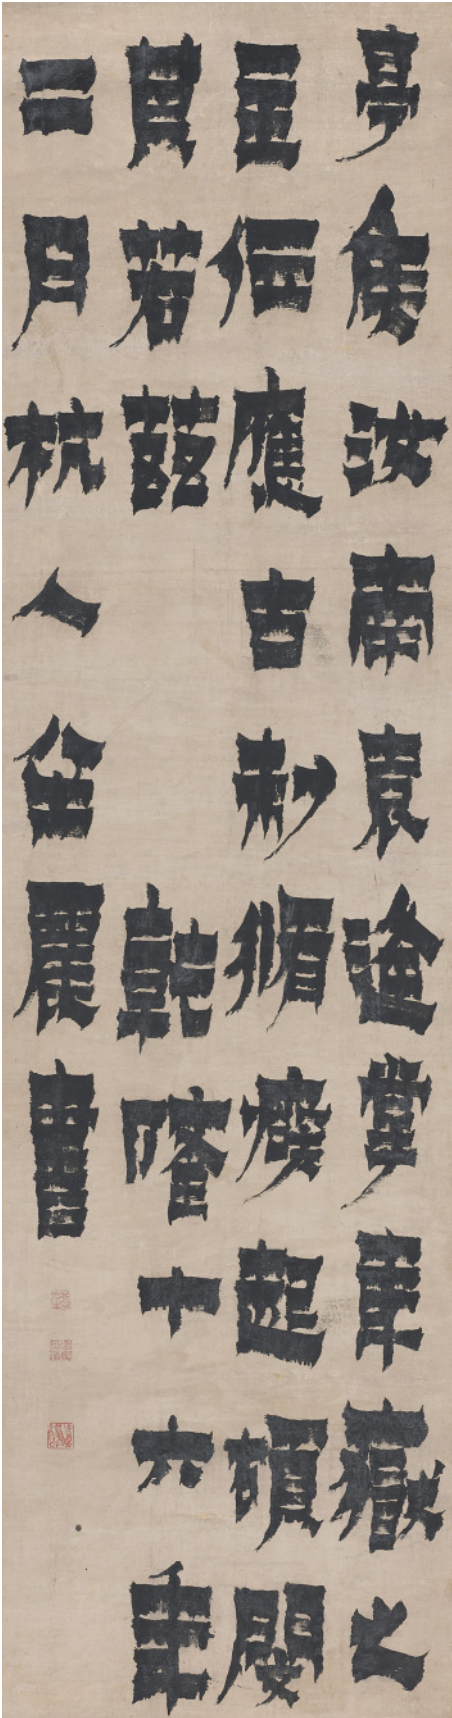 亭侯汝南袁逢掌華嶽之
主位應古制循癈起頓閔
其若茲 乾隆十六年
二月杭人金農書